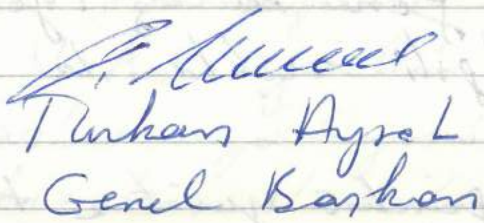 Turkan Aysel
Genel Baskan